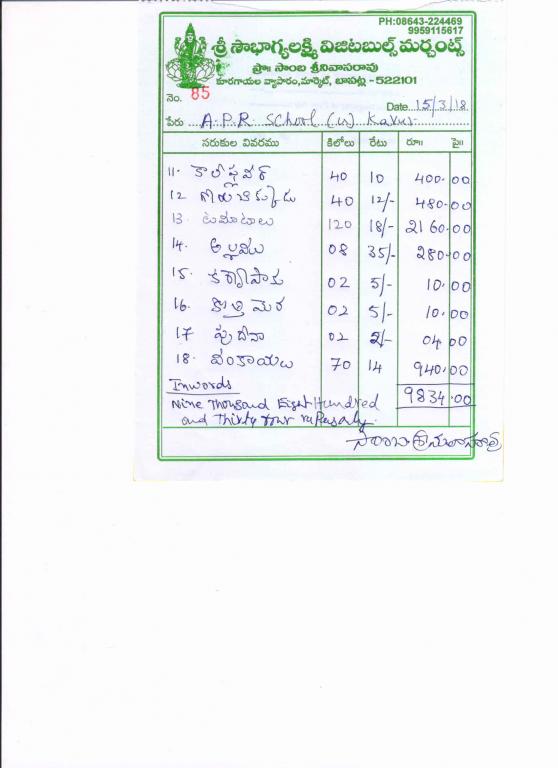 PH:08643-224469
9959115617
శ్రీ సౌభాగ్యలక్ష్మి విజిటబుల్స్ మర్చంట్స్
ప్రొః సాంబ శ్రీనివాసరావు
కూరగాయల వ్యాపారం,మార్కెట్, బాపట్ల - 522101
నెం. 85
Date 15/3/18
పేరు A.P.R School (w) Kavur
సరుకుల వివరము కిలోలు రేటు రూ॥ పై॥
11. కాలీఫ్లవర్ 40 10 400.00
12 గోరుచిక్కుడు 40 12/- 480.00
13. టమోటాలు 120 18/- 2160.00
14. అల్లము 08 35/- 280.00
15. కర్వేపాకు 02 5/- 10.00
16. కొత్తిమెర 02 5/- 10.00
17 పుదీనా 02 2/- 04.00
18. వంకాయలు 70 14 940.00
Inwords 9834.00
Nine Thousand Eight Hundred
and Thirty four rupees only
సాంబ శ్రీనివాసరావు